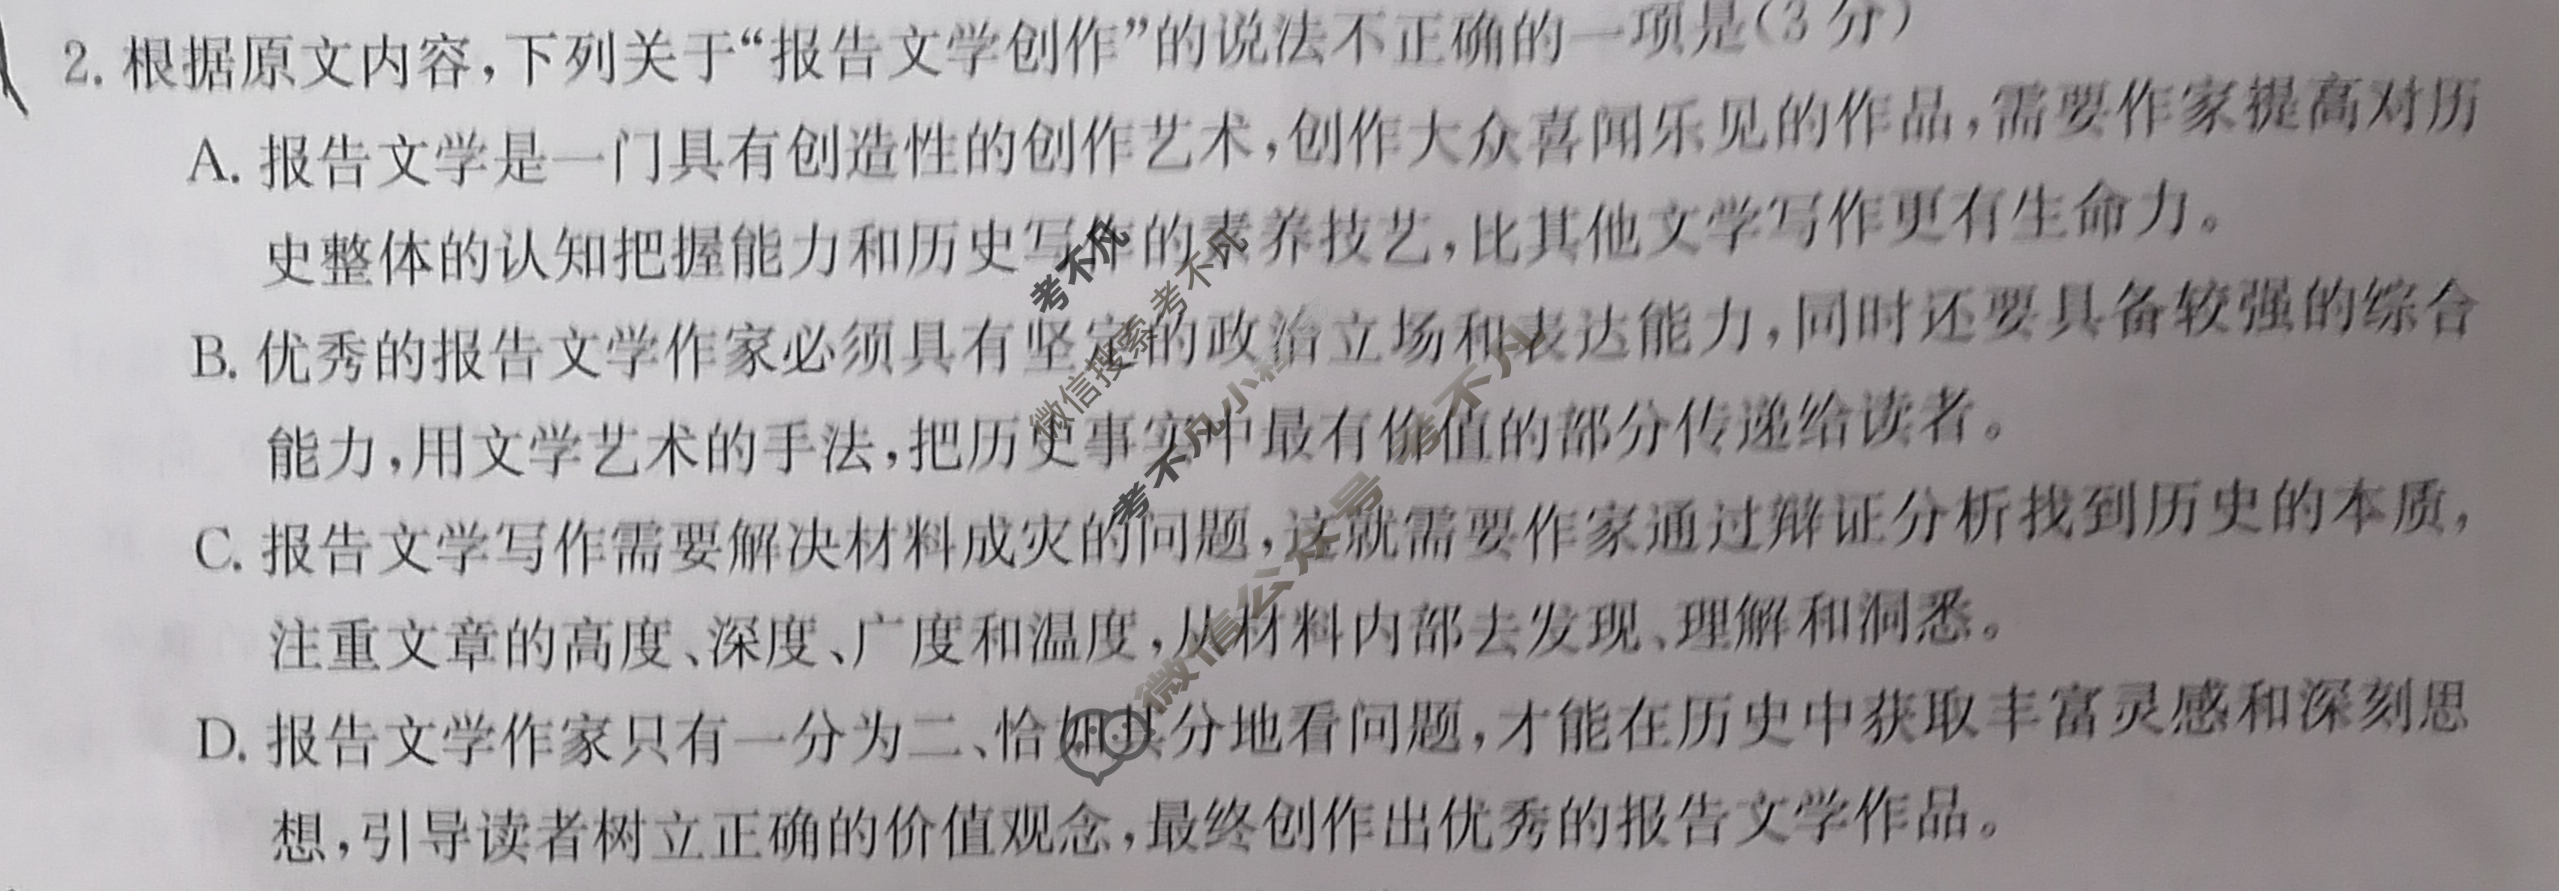 2. 根据原文内容，下列关于“报告文学创作”的说法不正确的一项是（3分）
A. 报告文学是一门具有创造性的创作艺术，创作大众喜闻乐见的作品，需要作家提高对历
史整体的认知把握能力和历史写作的素养技艺，比其他文学写作更有生命力。
B. 优秀的报告文学作家必须具有坚定的政治立场和表达能力，同时还要具备较强的综合
能力，用文学艺术的手法，把历史事实中最有价值的部分传递给读者。
C. 报告文学写作需要解决材料成灾的问题，这就需要作家通过辩证分析找到历史的本质，
注重文章的高度、深度、广度和温度，从材料内部去发现、理解和洞悉。
D. 报告文学作家只有一分为二、恰如其分地看问题，才能在历史中获取丰富灵感和深刻思
想，引导读者树立正确的价值观念，最终创作出优秀的报告文学作品。
考不凡
微信搜索考不凡
考不凡小程
微信公众号 考不凡